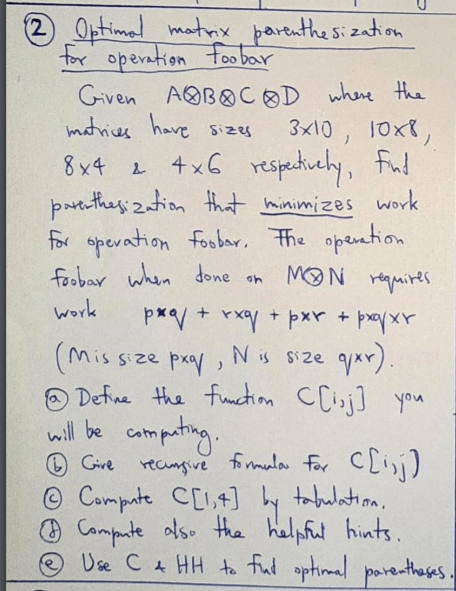 ② Optimal matrix parenthesization
for operation foobar
Given A⊗B⊗C⊗D where the
matrices have sizes 3x10, 10x8,
8x4 & 4x6 respectively, find
parenthesization that minimizes work
for operation foobar. The operation
foobar when done on M⊗N requires
work pxq + rxq + pxr + pxqxr
(M is size pxq, N is size qxr).
ⓐ Define the function C[i,j] you
will be computing.
ⓑ Give recursive formula for C[i,j)
ⓒ Compute C[1,4] by tabulation.
ⓓ Compute also the helpful hints.
ⓔ Use C & HH to find optimal parentheses.